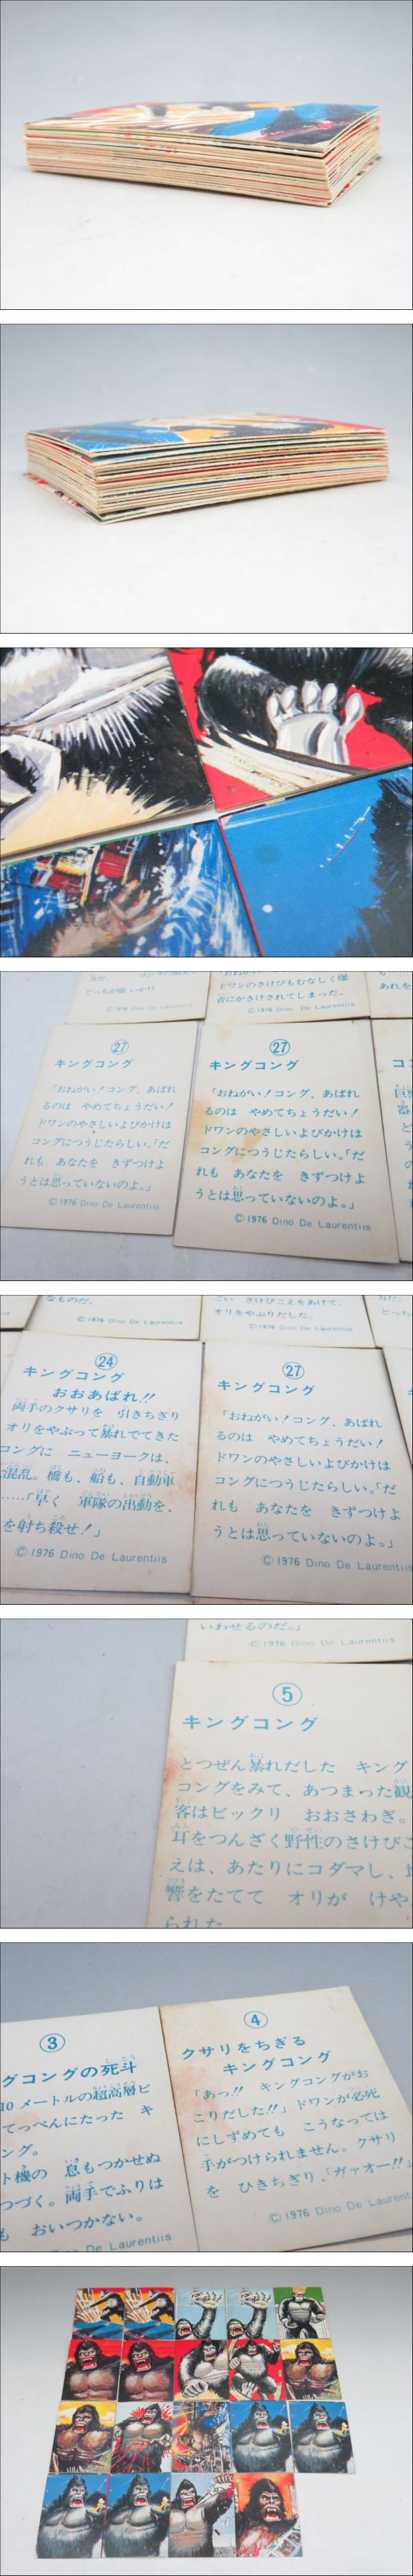 どっちが強いか!?
© 1976 Dino De Laurentiis
音にかきけされてしまった。
© 1976 Dino De Laurentiis
あれを
㉗
キングコング
「おねがい！コング、あばれ
るのは やめてちょうだい！
ドワンのやさしいよびかけは
コングにつうじたらしい。「だ
れも あなたを きずつけよ
うとは思っていないのよ。」
© 1976 Dino De Laurentiis
㉗
キングコング
「おねがい！コング、あばれ
るのは やめてちょうだい！
ドワンのやさしいよびかけは
コングにつうじたらしい。「だ
れも あなたを きずつけよ
うとは思っていないのよ。」
© 1976 Dino De Laurentiis
なものだ。
© 1976 Dino De Laurentiis
ごい さけびごえをあげて、
オリをやぶりだした。
© 1976 Dino De Laurentiis
㉔
キングコング
おおあばれ!!
両手のクサリを 引きちぎり
オリをやぶって暴れでてきた
コングに ニューヨークは、
混乱。橋も、船も、自動車
……「早く 軍隊の出動を、
を射ち殺せ！」
© 1976 Dino De Laurentiis
㉗
キングコング
「おねがい！コング、あばれ
るのは やめてちょうだい！
ドワンのやさしいよびかけは
コングにつうじたらしい。「だ
れも あなたを きずつけよ
うとは思っていないのよ。」
© 1976 Dino De Laurentiis
いわせるのだ。」
© 1976 Dino De Laurentiis
⑤
キングコング
とつぜん暴れだした キング
コングをみて、あつまった観
客はビックリ おおさわぎ。
耳をつんざく野性のさけびご
えは、あたりにコダマし、
響をたてて オリが けや
られた
③
グコングの死斗
10メートルの超高層ビ
てっぺんにたった キ
ング。
ト機の 息もつかせぬ
つづく。両手でふりは
も おいつかない。
De Laurentiis
④
クサリをちぎる
キングコング
「あっ!! キングコングがお
こりだした!!」ドワンが必死
にしずめても こうなっては
手がつけられません。クサリ
を ひきちぎり、「ガァオー!!」
© 1976 Dino De Laurent